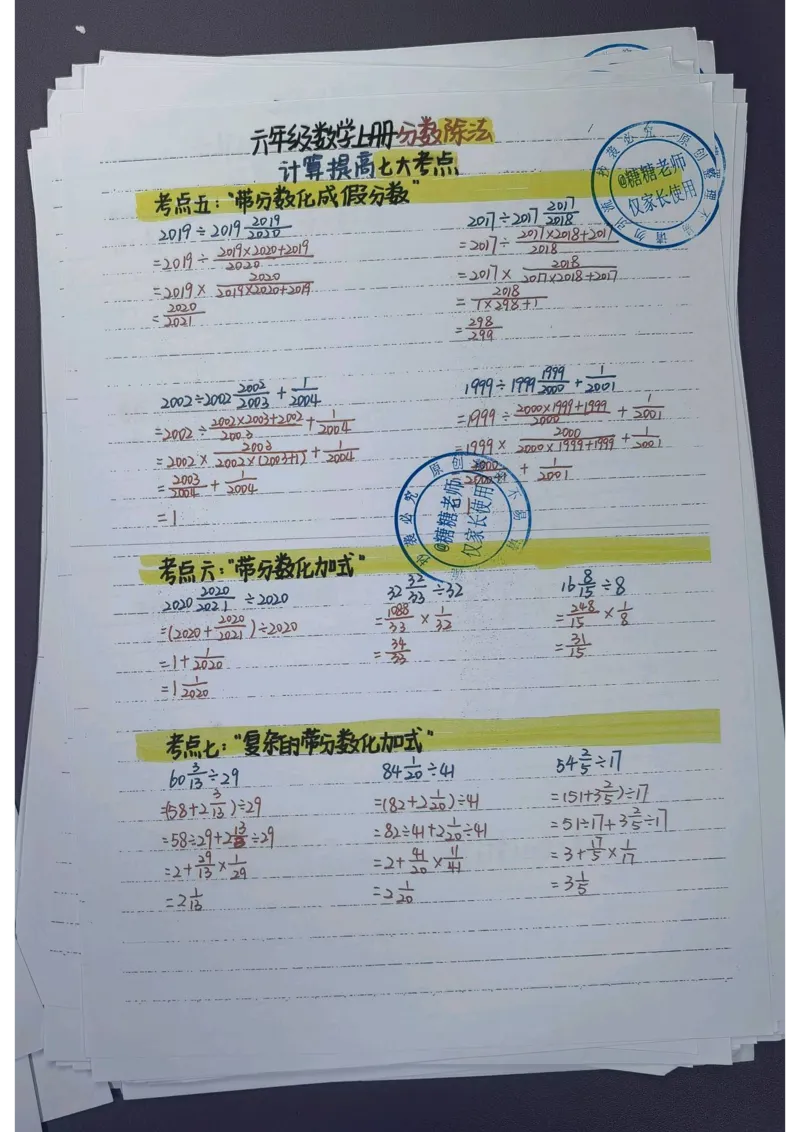 六年级数学上册分数除法
计算提高七大考点
考点五：“带分数化成假分数”
2019÷2019 2019/2020
=2019÷ 2019×2020+2019/2020
=2019× 2020/2019×2020+2019
=2020/2021
2017÷2017 2017/2018
=2017÷ 2017×2018+2017/2018
=2017× 2018/2017×2018+2017
=2018/1×298+1
=298/299
2002÷2002 2002/2003 + 1/2004
=2002÷ 2002×2003+2002/2003 + 1/2004
=2002× 2003/2002×(2003+1) + 1/2004
=2003/2004 + 1/2004
=1
1999÷1999 1999/2000 + 1/2001
=1999÷ 2000×1999+1999/2000 + 1/2001
=1999× 2000/2000×1999+1999 + 1/2001
+ 1/2001
考点六：“带分数化加式”
2020 2020/2021 ÷2020
=(2020+ 2020/2021)÷2020
=1+ 1/2020
=1 1/2020
32 32/33 ÷32
=1088/33 × 1/32
=34/33
16 8/15 ÷8
=248/15 × 1/8
=31/15
考点七：“复杂的带分数化加式”
60 3/13 ÷29
=(58+2 3/13)÷29
=58÷29+2 ÷29
=2+ 29/13 × 1/29
=2 1/13
84 1/20 ÷41
=(82+2 1/20)÷41
=82÷41+2 1/20 ÷41
=2+ 41/20 × 11/41
=2 1/20
54 2/5 ÷17
=(51+3 2/5)÷17
=51÷17+3 2/5 ÷17
=3+ 17/5 × 1/17
=3 1/5
抄袭必究 原创整理不易 请勿引流
@糖糖老师
仅家长使用
抄袭必究 原创 不易
@糖糖老师
仅家长使用